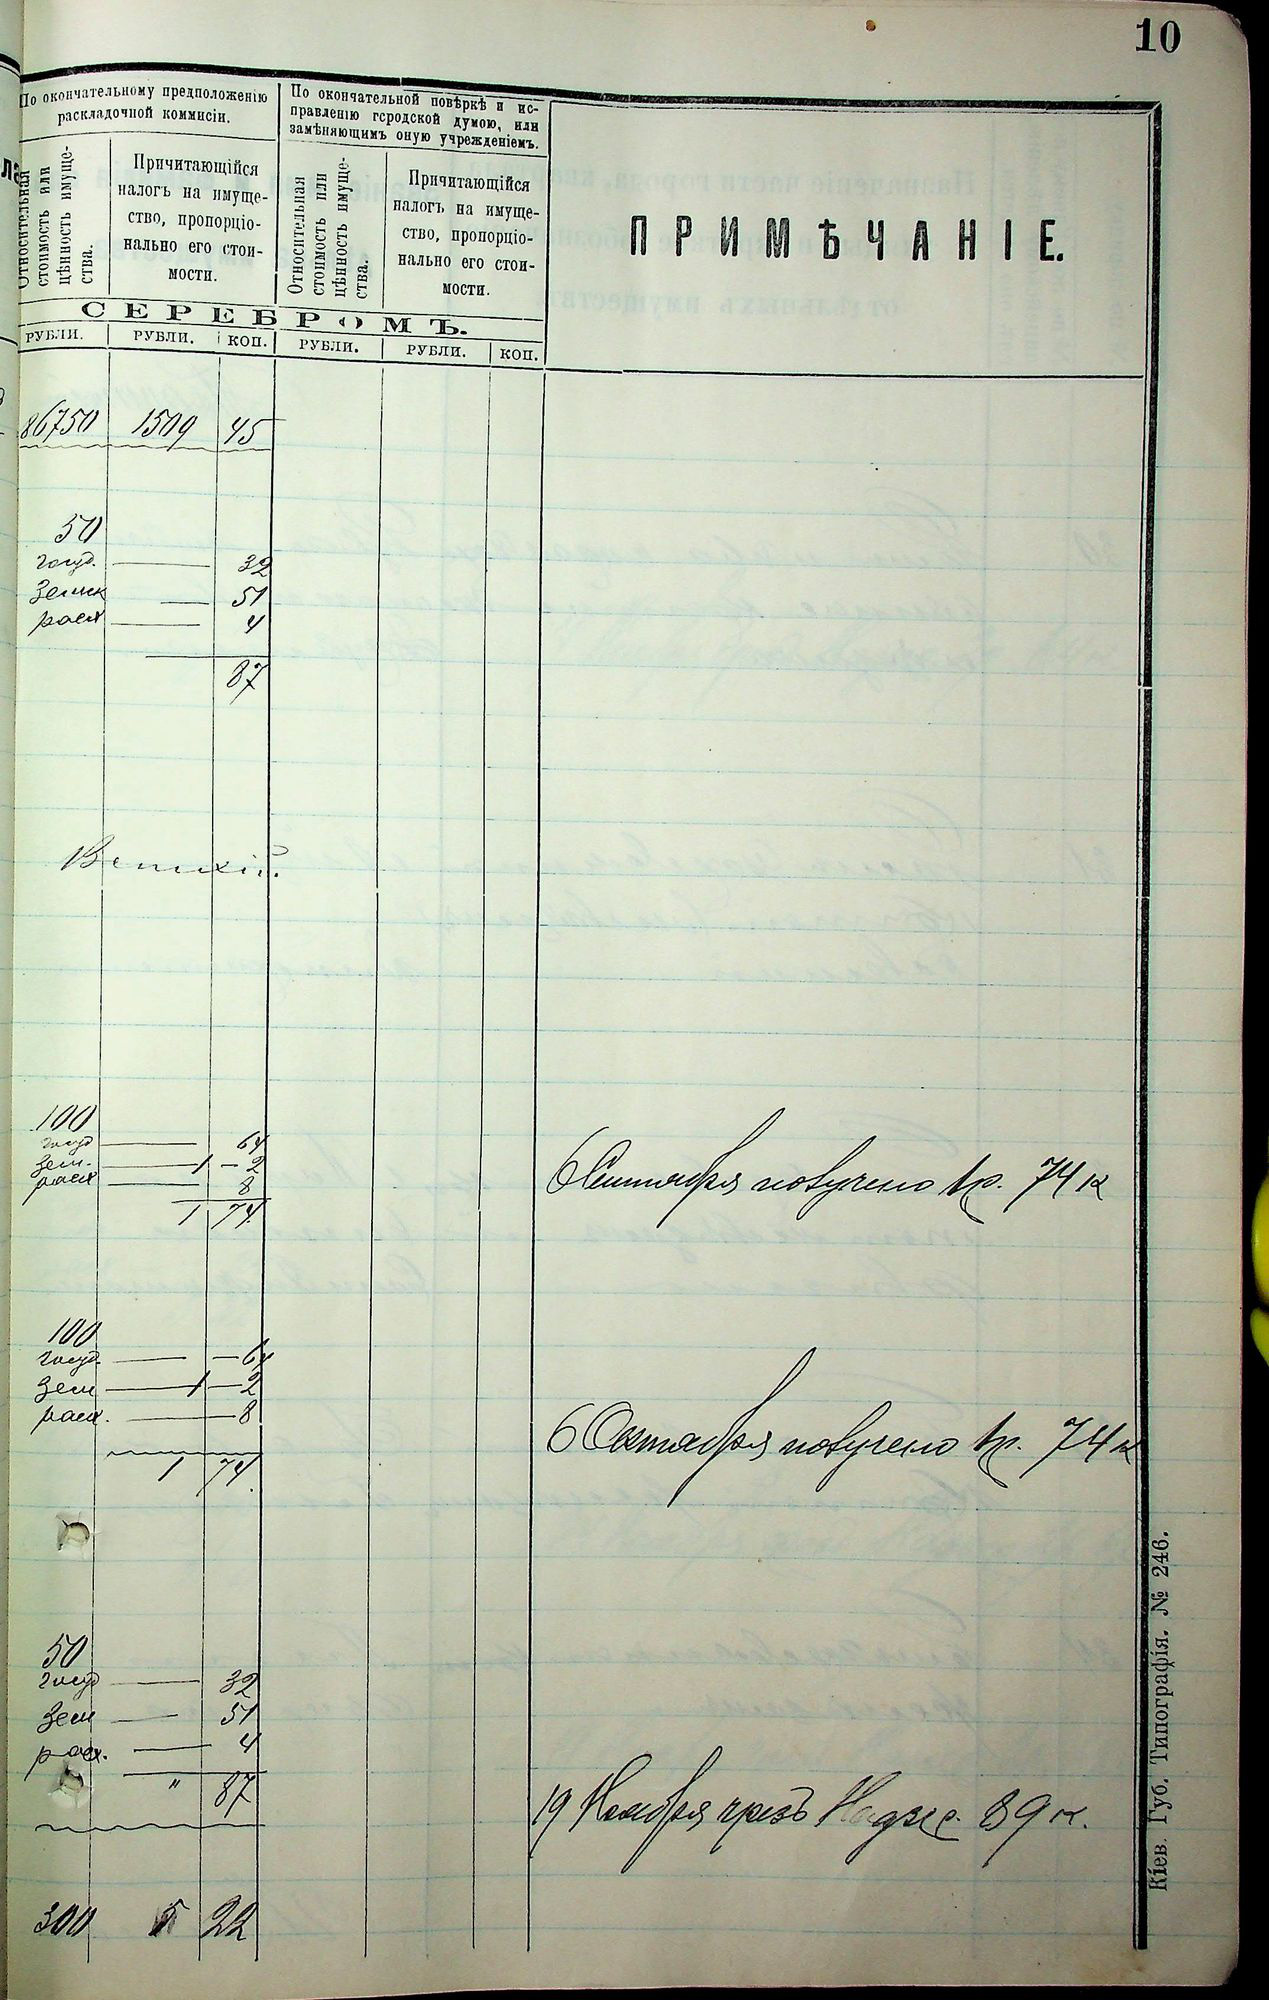 10
По окончательному предположенію
раскладочной коммисіи.
По окончательной повѣркѣ и ис-
правленію городской думою, или
замѣняющимъ оную учрежденіемъ.
Относительная
стоимость или
цѣнность имуще-
ства.
Причитающійся
налогъ на имуще-
ство, пропорціо-
нально его стои-
мости.
Относительная
стоимость или
цѣнность имуще-
ства.
Причитающійся
налогъ на имуще-
ство, пропорціо-
нально его стои-
мости.
ПРИМѢЧАНІЕ.
СЕРЕБРОМЪ.
РУБЛИ. РУБЛИ. КОП. РУБЛИ. РУБЛИ. КОП.
86750 1509 45
50
госуд. — 32
земск — 51
расх — 4
87
100
госуд — 64
зем. — 1 — 2
расх — 8
1 74
6 Сентября получено 1 р. 74 к
100
госуд. — — 64
зем — 1 — 2
расх. — 8
1 74
6 Октября получено 1 р. 74 к
50
госуд — 32
зем — 51
расх. — 4
" 87
19 Ноября чрезъ 89 к.
300 5 22
Кіев. Губ. Типографія. № 246.